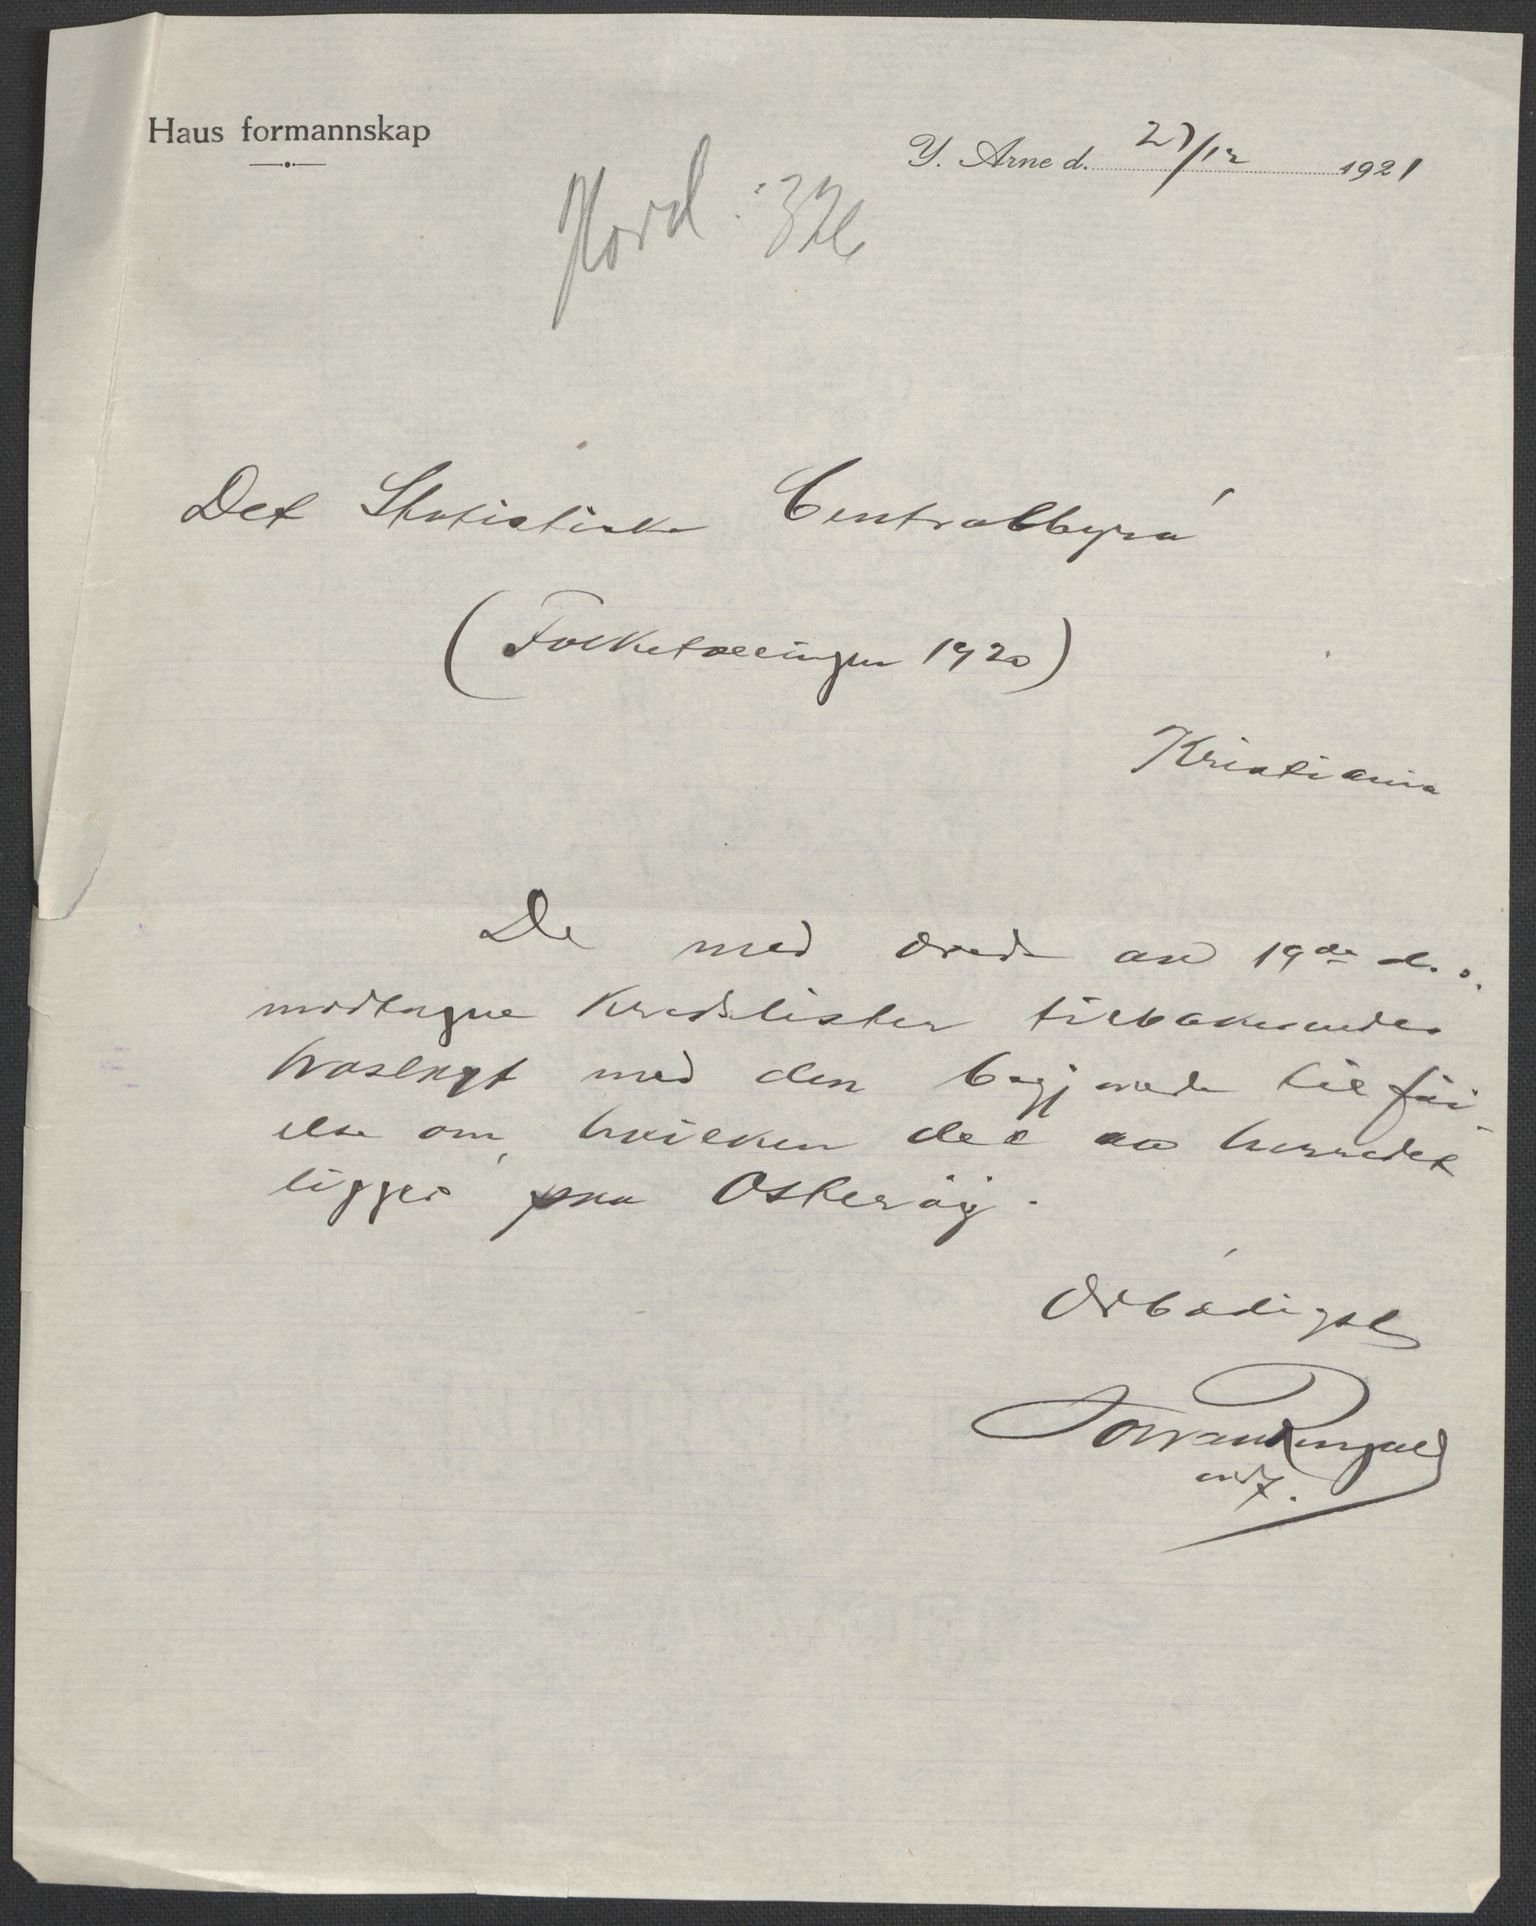 Haus formannskap
Y. Arne d. 27/12 1921
Hord: 326
Det Statistiske Centralbyrå
(Folketællingen 1920)
Kristiania
De med ærede av 19de d.s.
modtagne kredslister tilbakesendes
vedlagt med den begjærede tilføi
else om hvilken del av herredet
ligger paa Osterøy.
Ærbødigst
ordf.